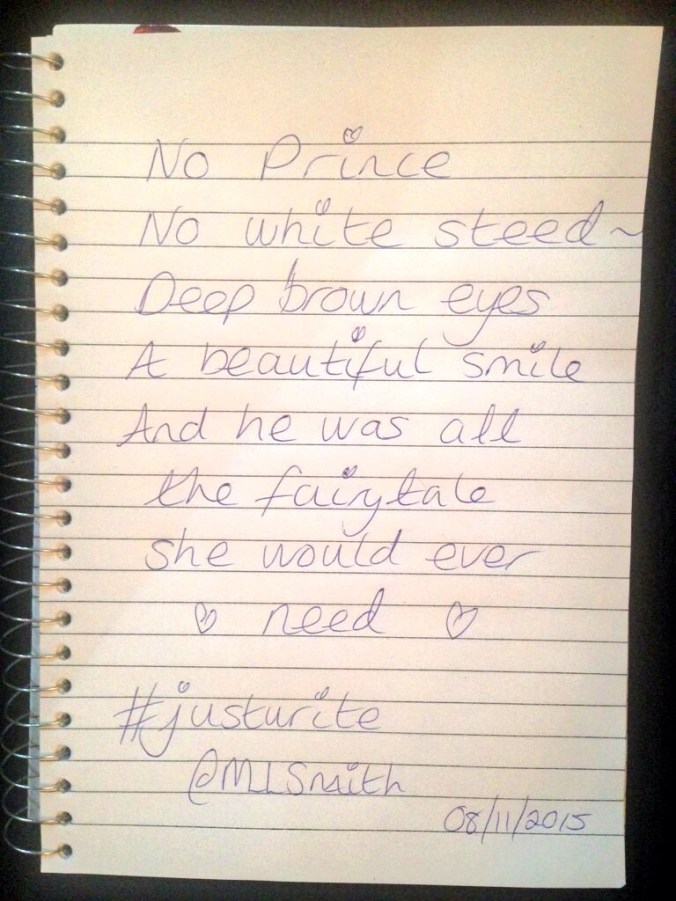 No Prince
No white steed~
Deep brown eyes
A beautiful smile
And he was all
the fairytale
she would ever
♡ need ♡
#justwrite
@MLSmith
08/11/2015